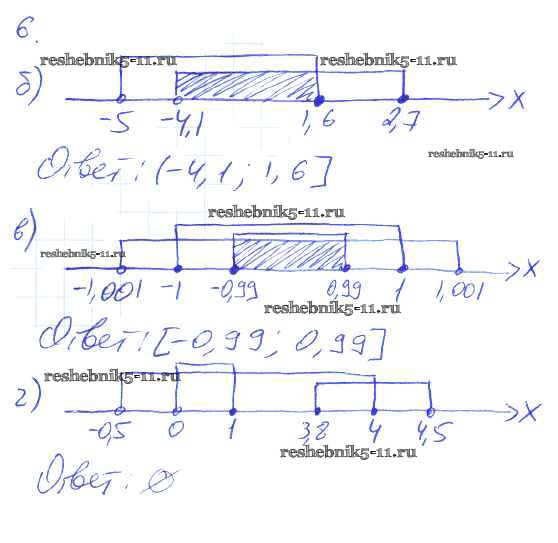 6.
reshebnik5-11.ru reshebnik5-11.ru
б)
-5 -4,1 1,6 2,7 x
Ответ: (-4,1; 1,6]
reshebnik5-11.ru
reshebnik5-11.ru
в)
reshebnik5-11.ru
-1,001 -1 -0,99 0,99 1 1,001 x
reshebnik5-11.ru
Ответ: [-0,99; 0,99]
reshebnik5-11.ru
г)
-0,5 0 1 3,8 4 4,5 x
reshebnik5-11.ru
Ответ: ∅